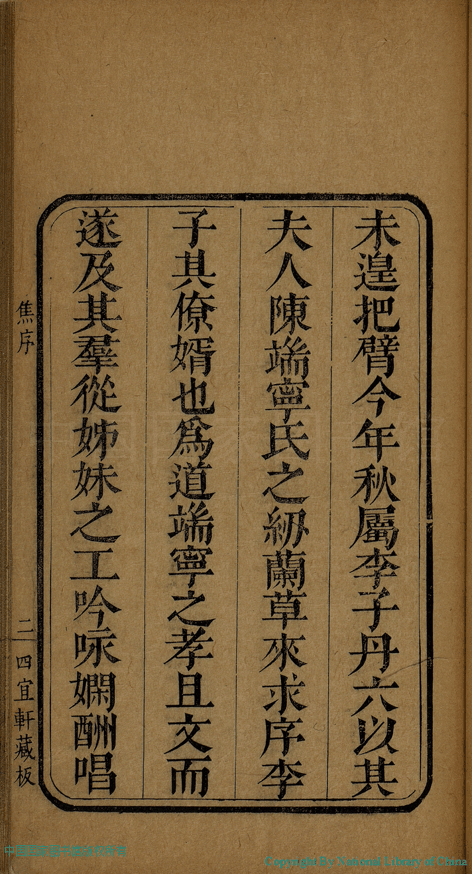 未遑把臂今年秋屬李子丹六以其
夫人陳端寧氏之紉蘭草來求序李
子其僚婿也爲道端寧之孝且文而
遂及其羣從姊妹之工吟咏嫻酬唱
焦序
二
四宜軒藏板
Copyright By National Library of China